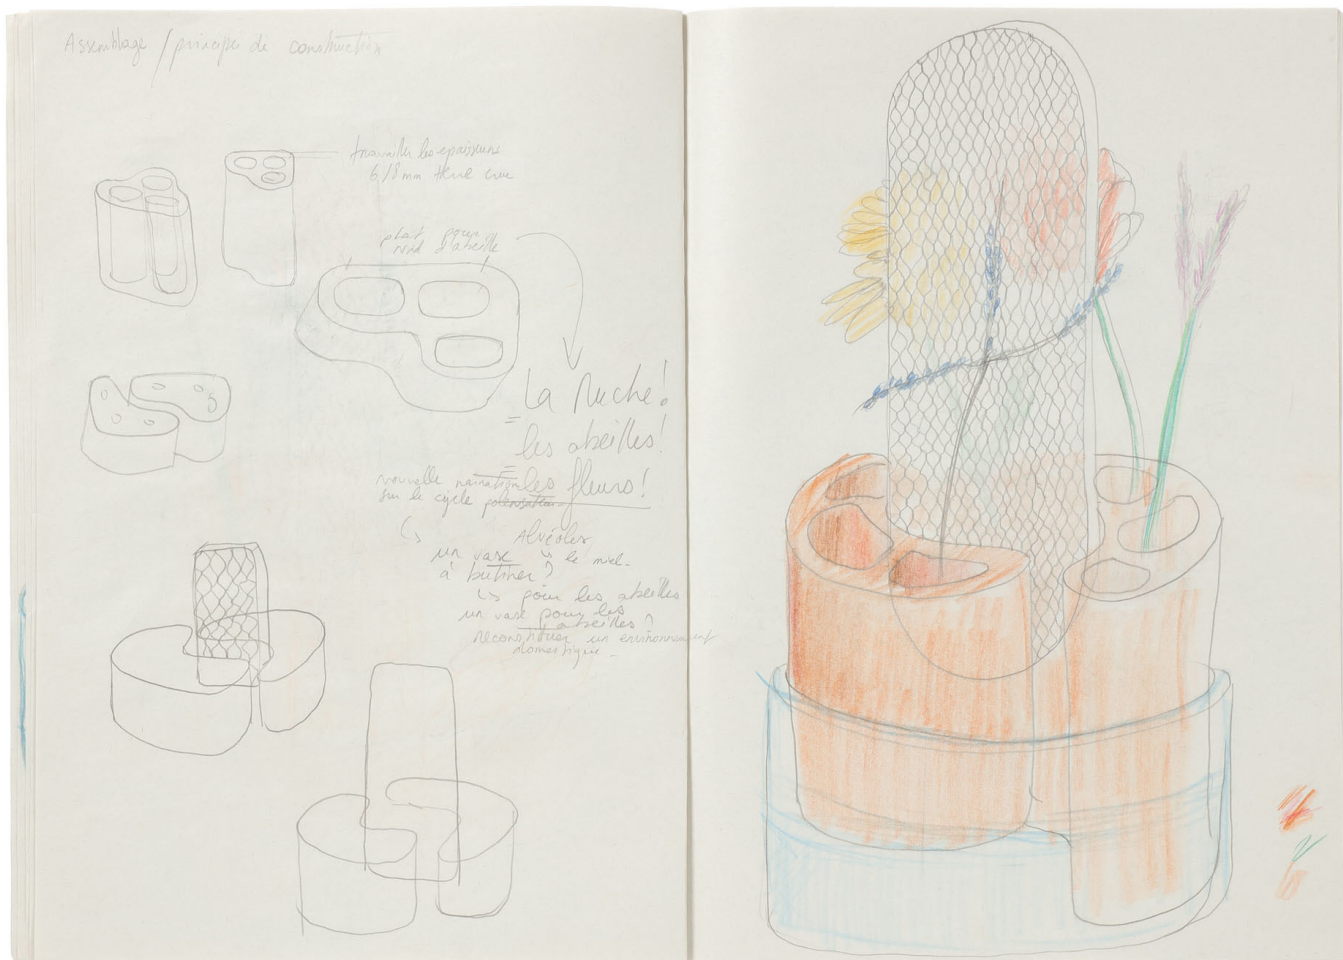 Assemblage / principe de construction
travailler les épaisseurs
6/8 mm terre crue
plat pour
nid d'abeille
La Ruche!
= les abeilles!
= les fleurs!
nouvelle narration
sur le cycle
Alvéoles
un vase ↳ le miel.
à butiner?
↳ pour les abeilles
un vase pour les
abeilles?
reconstituer un environnement
domestique.